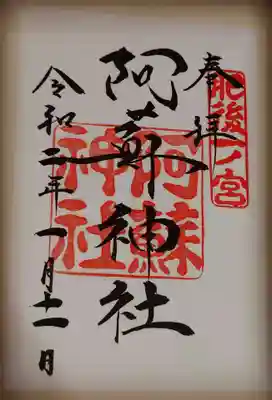 肥後一ノ宮
奉拝
阿蘇神社
阿蘇神社
令和二年一月十一日